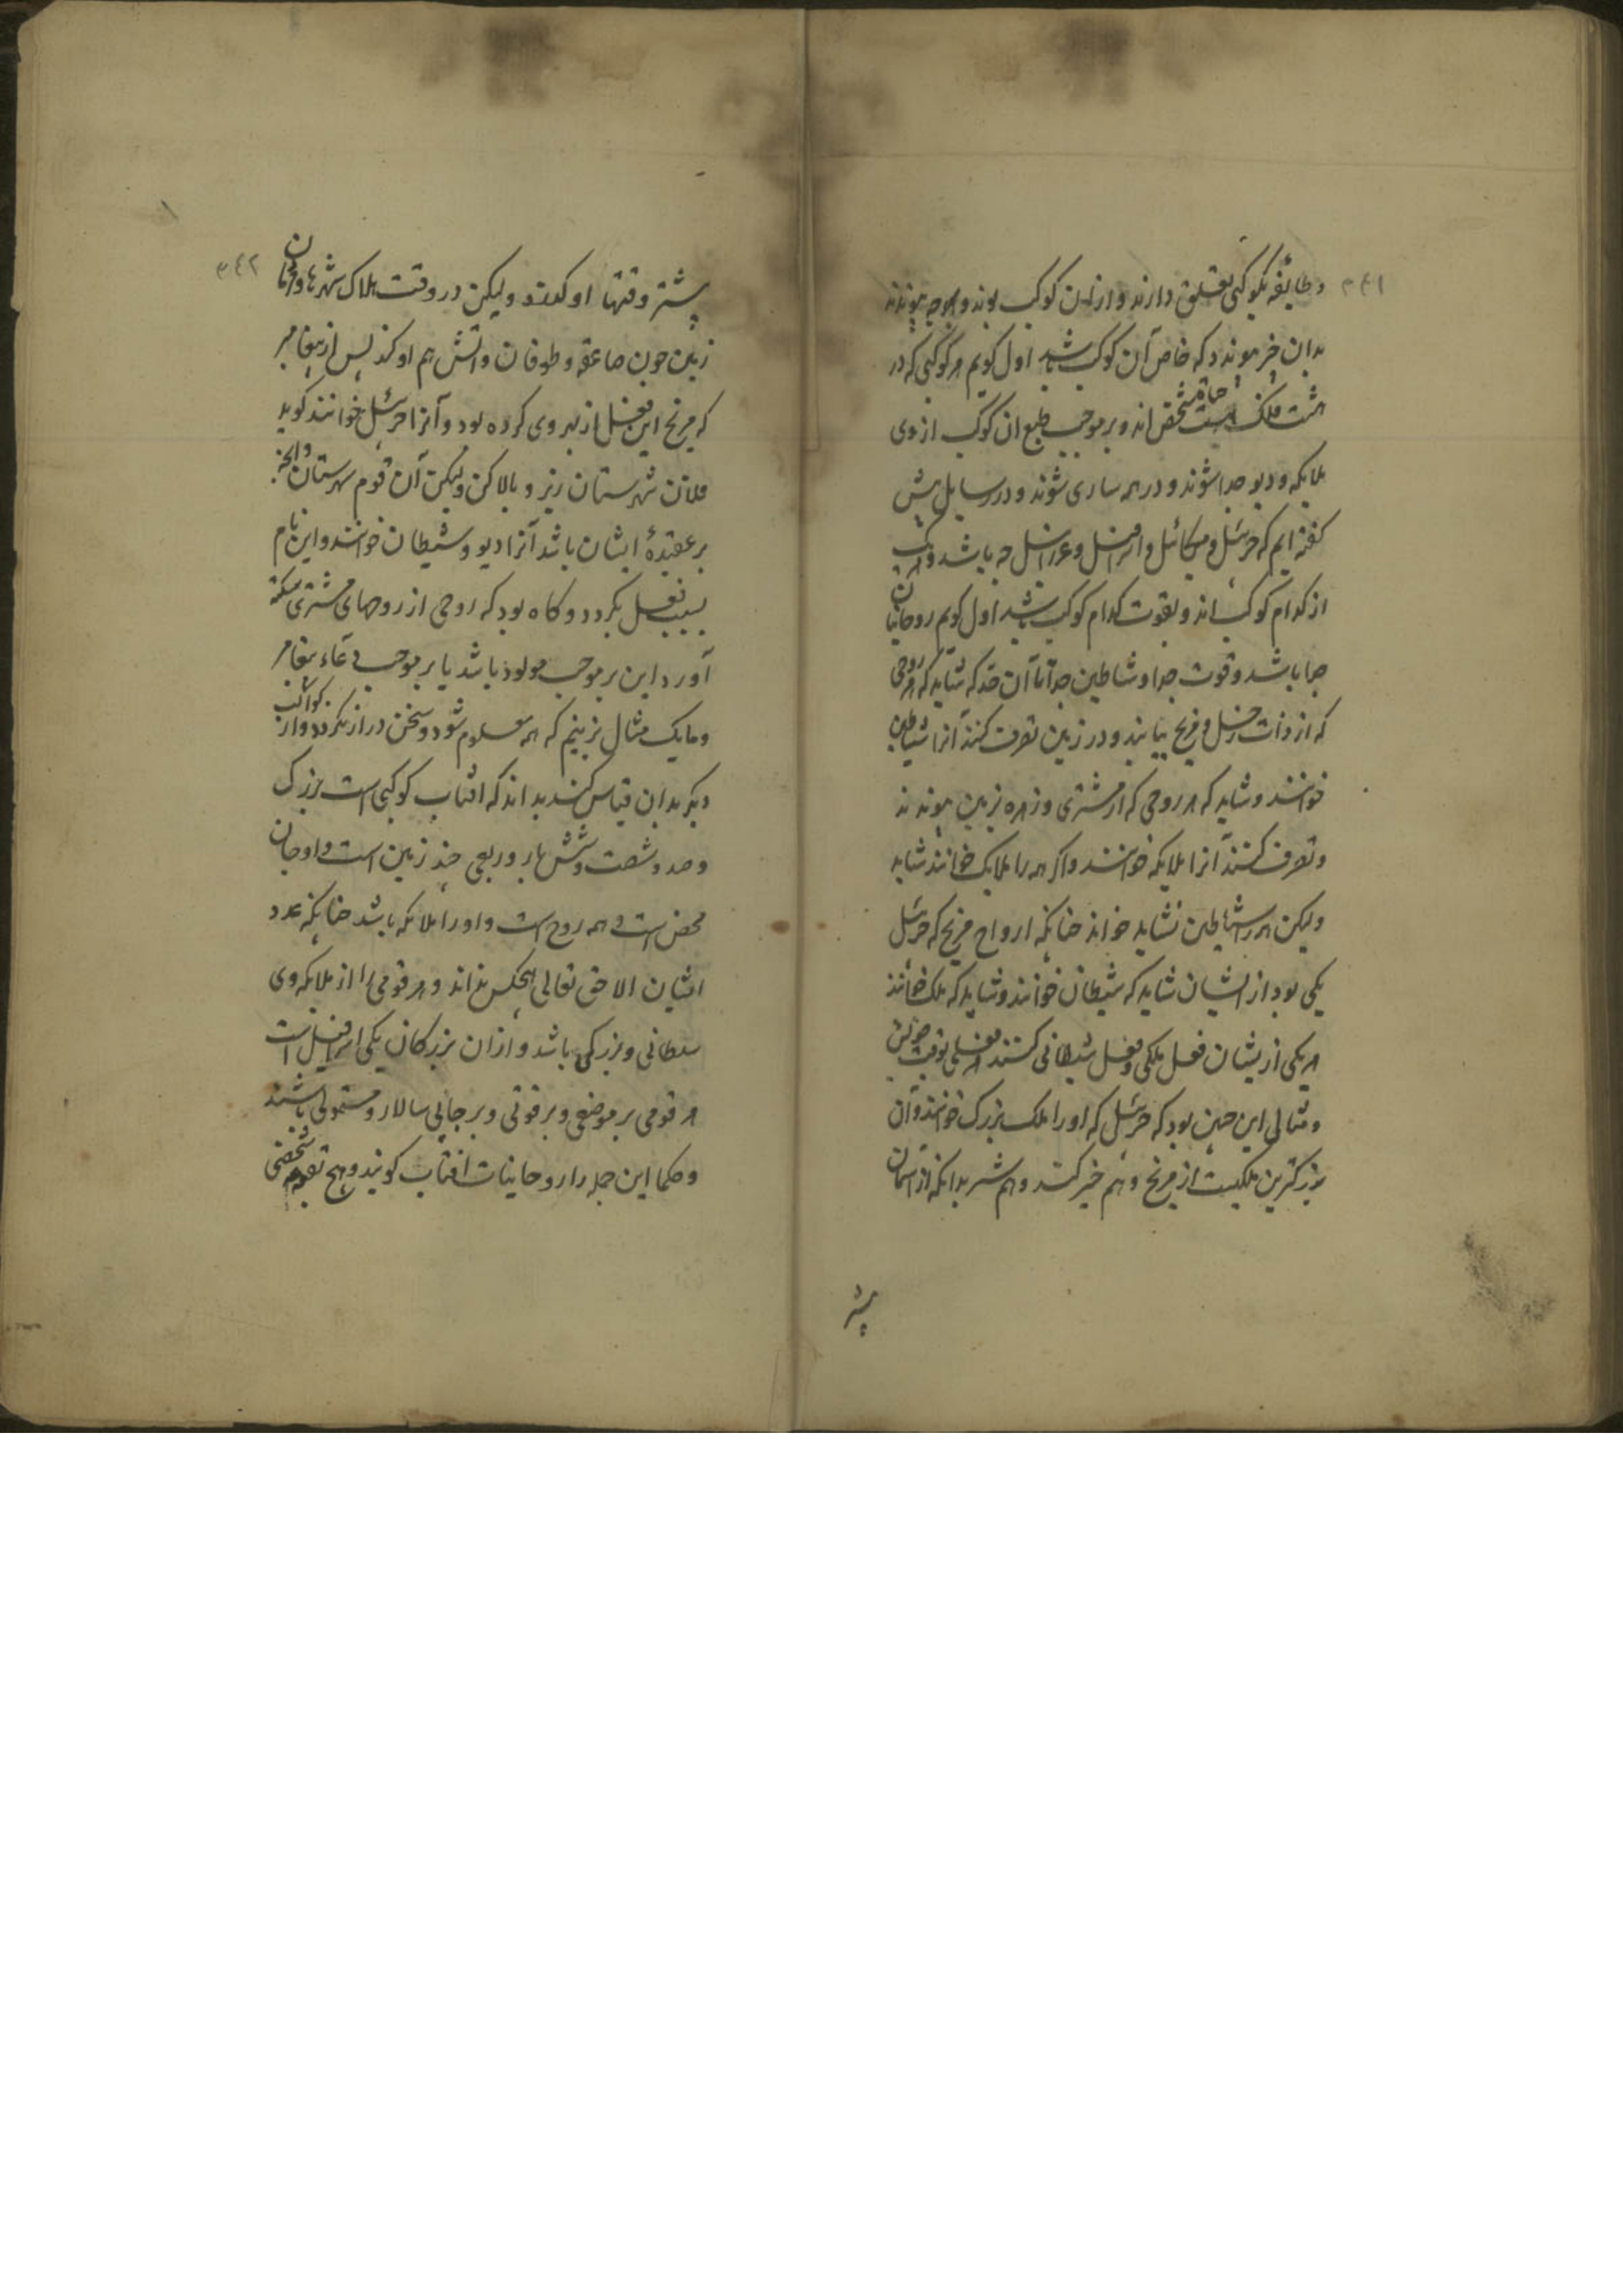 ٣٤١
و طایفه بکوکبی تعلق دارند و ازان کوکب بوند و هر چه پیوندند
بدان خبر پیوندد که خاص آن کوکب باشد اول کویم هر کوکبی که در
هشت فلک است حیاة شخص اند و بر موجب طبع ان کوکب از وی
ملایکه و دیو جدا شوند و در همه ساری شوند و در رسایل پیش
کفته ایم که جبرئیل و میکائیل و اسرافیل و عزرائیل چه باشد و هر یک
از کدام کوکب اند و بقوت کدام کوکب باشند اول کویم روحانیان
جدا باشد و قوت جدا و شیاطین جدا تا آن حد که شاید که هر روحی
که از ذات زحل و مریخ بیایند و در زمین تصرف کنند آنرا شیاطین
خوانند و شاید که هر روحی که از مشتری و زهره بزمین پیوندند
و تصرف کنند آنرا ملایکه خوانند و اکر همه را ملایک خوانند شاید
ولیکن همه را شیاطین نشاید خواند چنانکه ارواح مریخ که جبرئیل
یکی بود از ایشان شاید که شیطان خوانند و شاید که ملک خوانند
هر یکی ازیشان فعل ملکی و فعل شیطانی کنند هر فعلی بوقت خویش
و مثال این چنین بود که جبرئیل که او را ملک بزرک خوانند و آن
بزرکترین ملکیست از مریخ و هم خیر کند و هم شر بدانکه از آسمان
پیشتر
٣٤٢
پیشتر وقتها او کند و لیکن در وقت هلاک شهرها و قران
زمین چون صاعقه و طوفان و اتش هم او کند پس از پیغامبر
که مریخ این فعل از بهر وی کرده بود و آنرا جبرئیل خوانند کوید
فلان شهرستان زیر و بالا کن ولیکن آن قوم شهرستان و انچه
بر عقیدهٔ ایشان باشد آنرا دیو و شیطان خوانند و این نام
بسبب فعل بکردد و کاه بود که روحی از روحهای مشتری
آورد این بر موجب مولود باشد یا بر موجب دعاء پیغامبر
و ما یک مثال بزنیم که همه معلوم شود و سخن دراز نکردد و از کواکب
دیکر بدان قیاس کنند بداند که افتاب کوکبی است بزرک
و صد و شصت و شش بار و ربعی چند زمین است و او جان
محض است و همه روح است و او را ملائکه باشد چنانکه عدد
ایشان الا حق تعالی هیچکس نداند و هر قومی را از ملایکه وی
سلطانی و بزرکی باشد و ازان بزرکان یکی اسرافیل است
هر قومی بر موضعی و بر قوتی و بر جایی سالار و مستولی باشند
و حکما این جمله را روحانیات افتاب کویند و هیچ شخصی